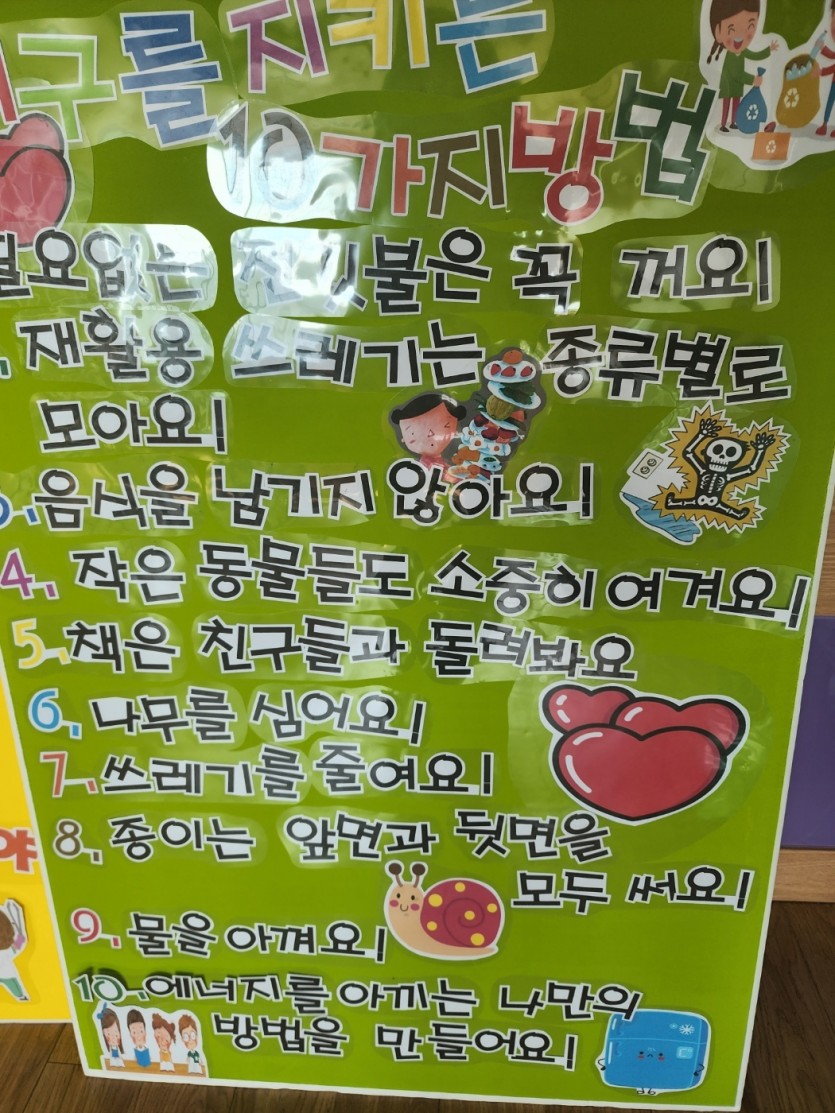 구를 지키는
10가지 방법
필요없는 전깃불은 꼭 꺼요!
재활용 쓰레기는 종류별로
모아요!
3. 음식을 남기지 않아요!
4. 작은 동물들도 소중히 여겨요!
5. 책은 친구들과 돌려봐요
6. 나무를 심어요!
7. 쓰레기를 줄여요!
8. 종이는 앞면과 뒷면을
모두 써요!
9. 물을 아껴요!
10. 에너지를 아끼는 나만의
방법을 만들어요!
야